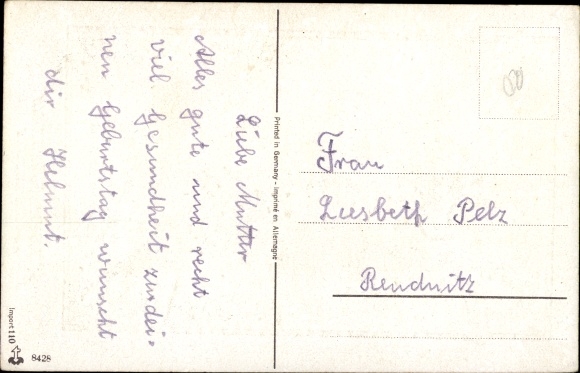 Liebe Mutter
Alles gute und recht
viel Gesundheit zu dei-
nen Geburtstag wünscht
dir Helmut.
Printed in Germany - Imprimé en Allemagne
Frau
Liesbeth Pelz
Rendnitz
Import 110
8428